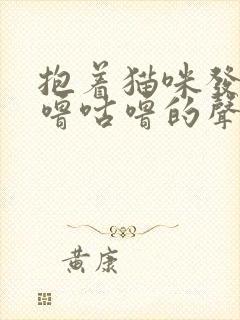 抱着猫咪發
嚕咕嚕的聲
黄康